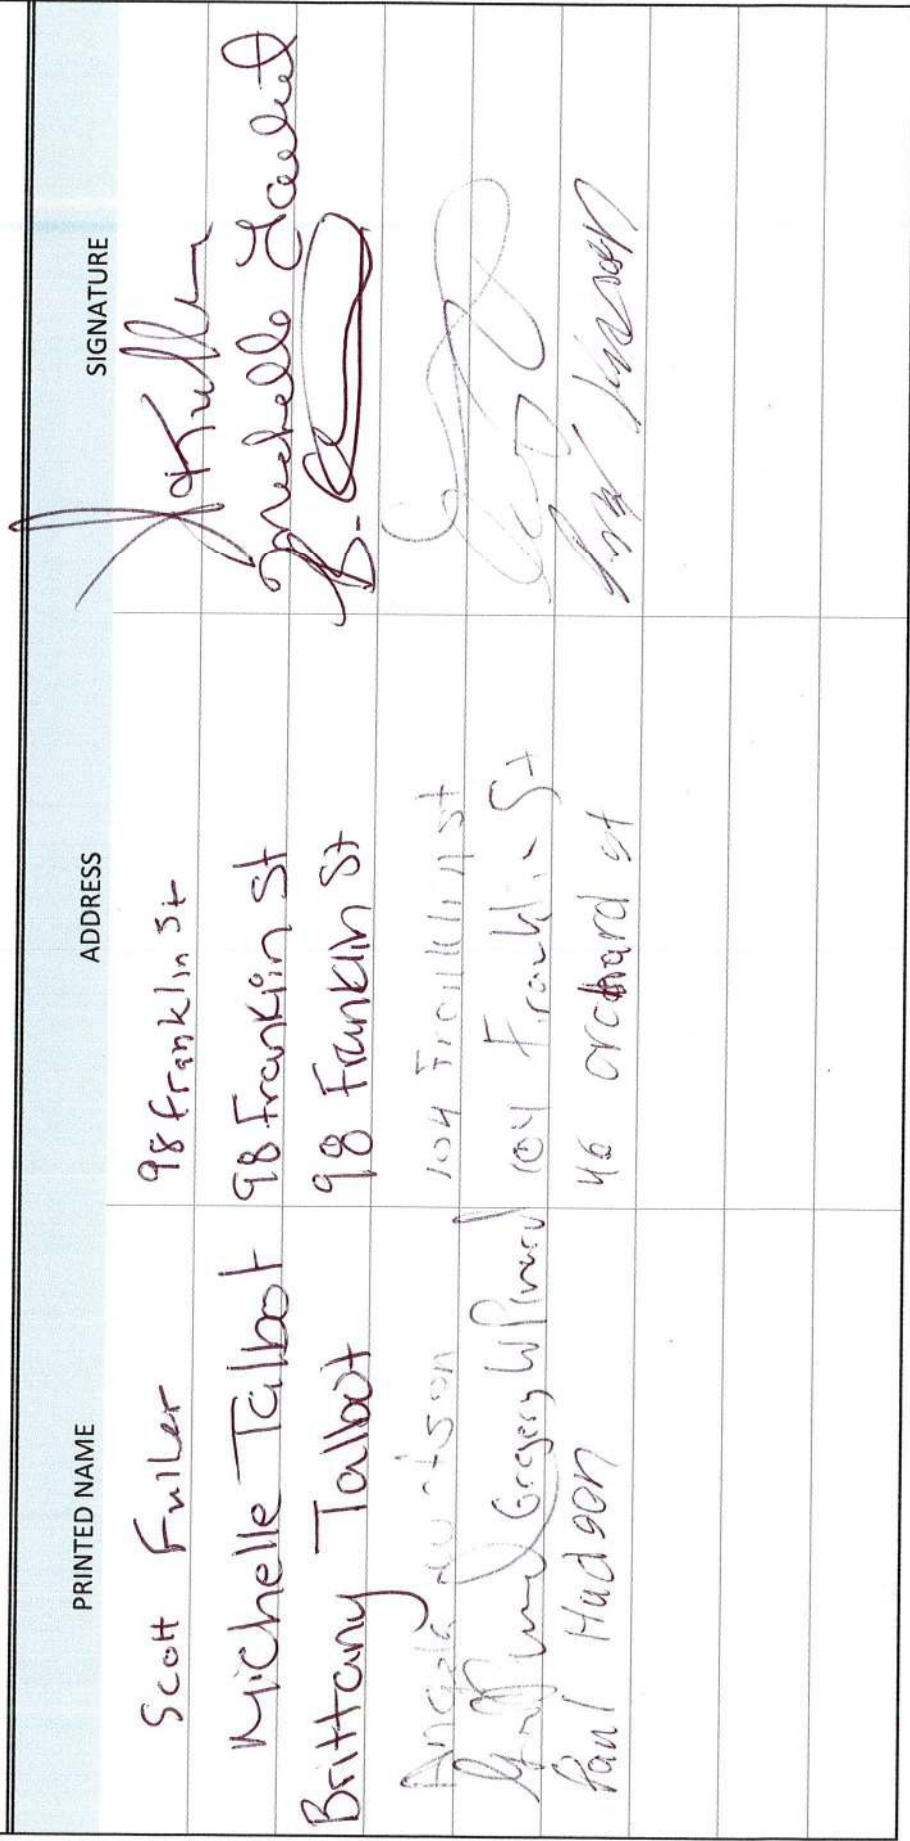 PRINTED NAME ADDRESS SIGNATURE
Scott Fuller 98 Franklin St Fuller
Michelle Talbot 98 Franklin St Michelle Talbot
Brittany Talbot 98 Franklin St B.
Angela 104 Franklin St
Gregory W Pinard 104 Franklin St
Paul Hudson 46 orchard st Paul Hudson